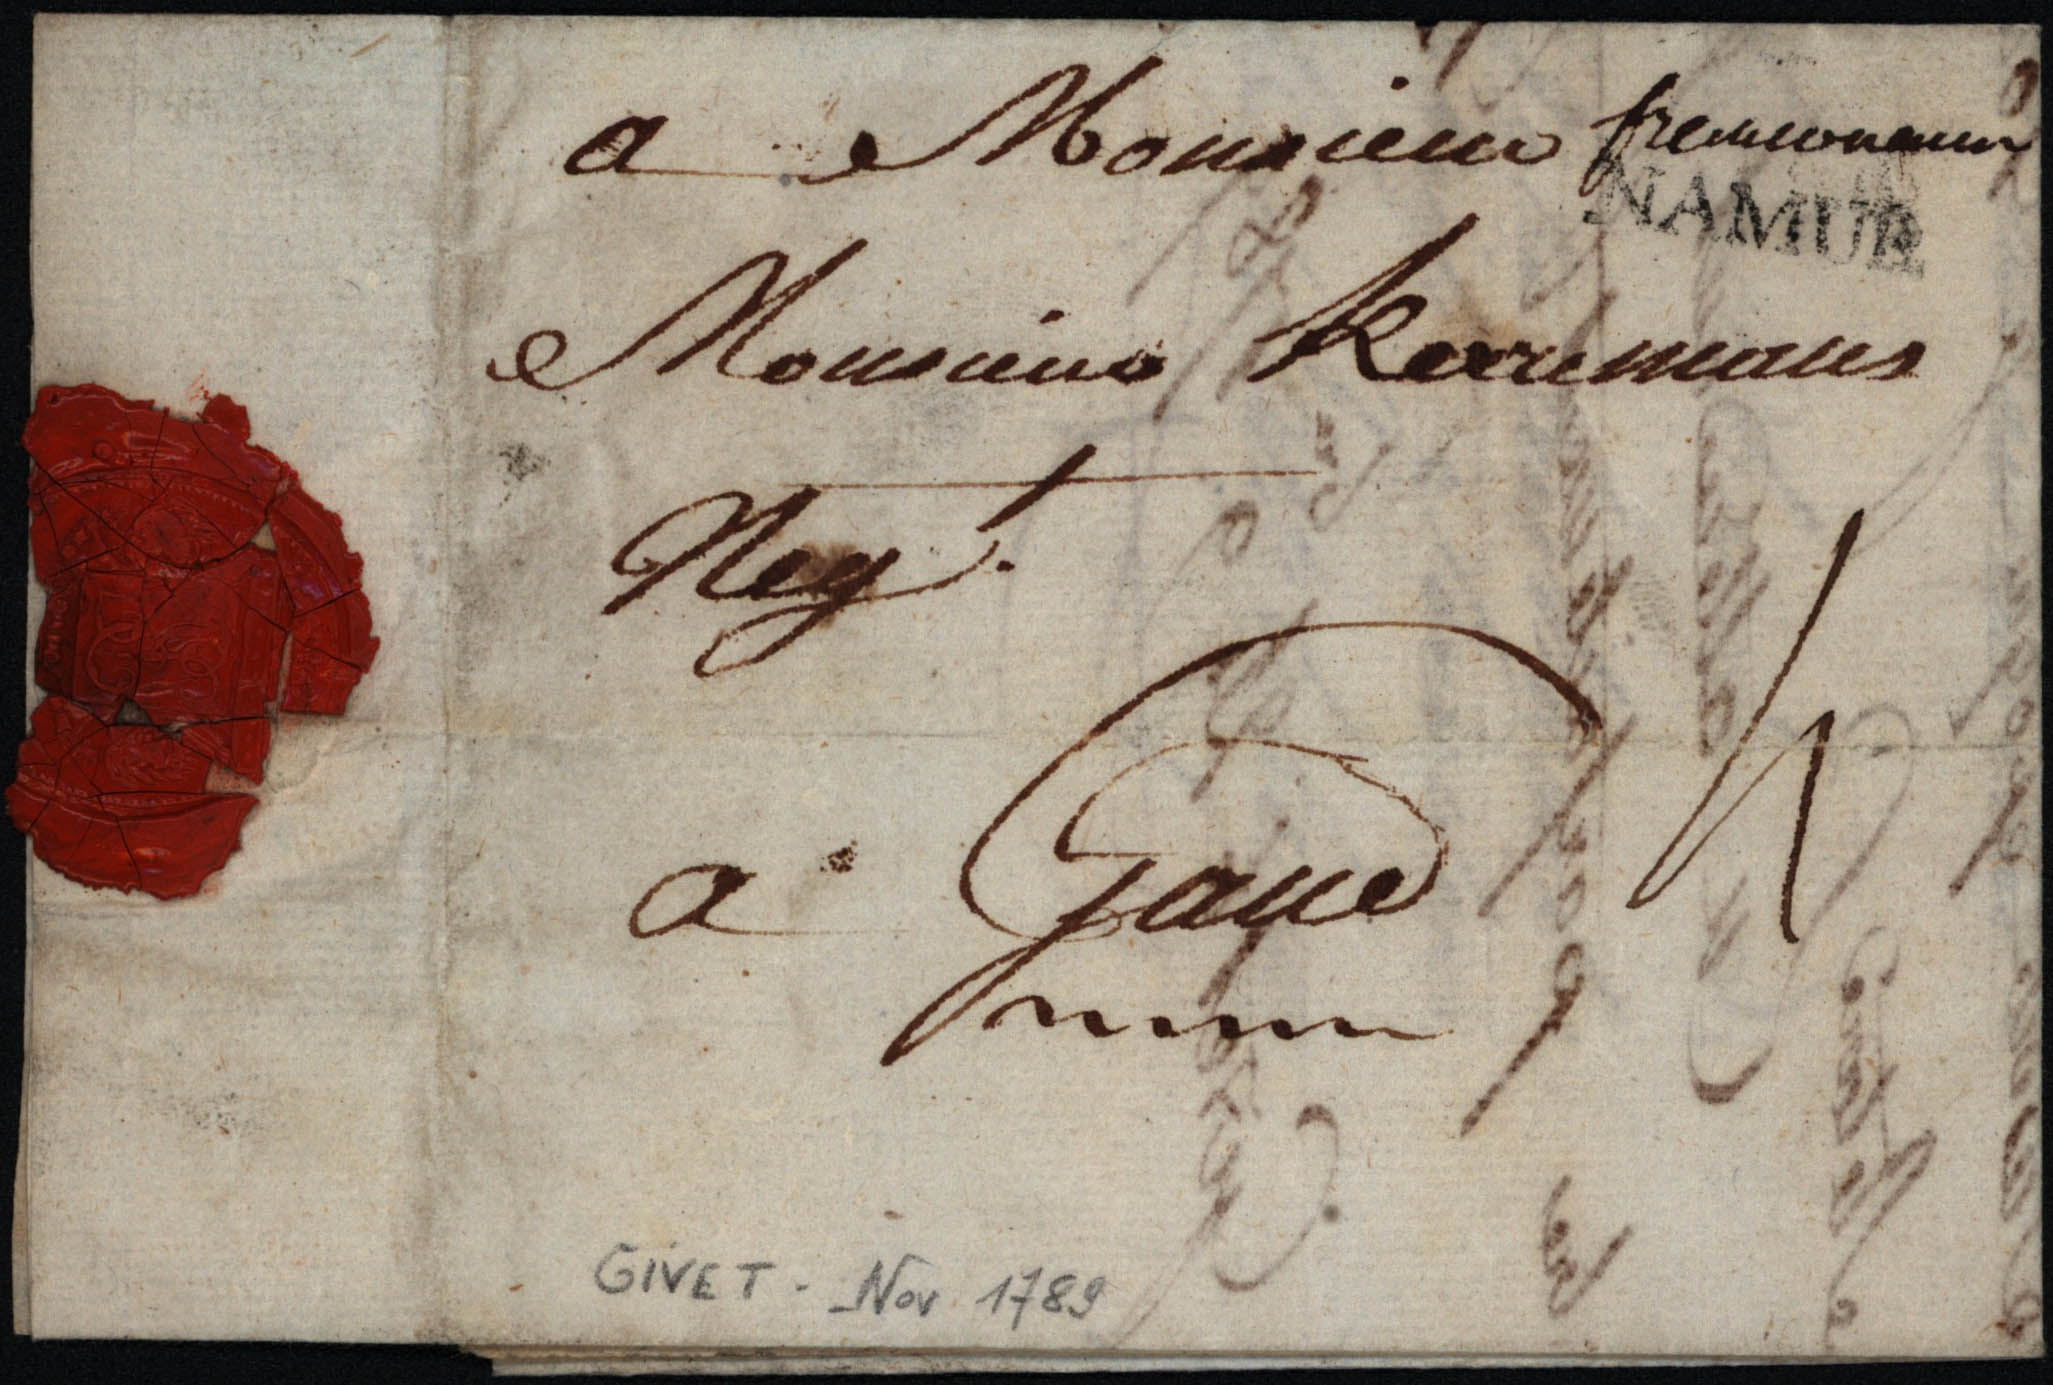 a Monsieur
NAMUR
Monsieur Korremans
Neg.t
a Gand
4
GIVET - Nov 1789